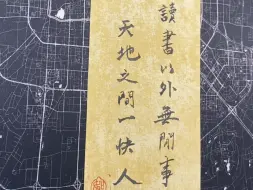 讀書以外無閒事
天地之間一快人